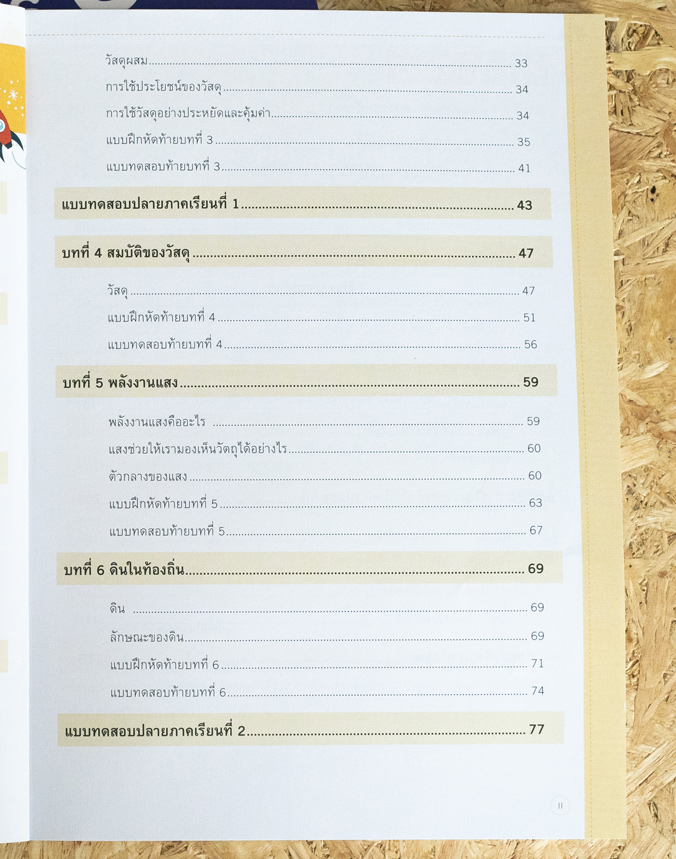 วัสดุผสม 33
การใช้ประโยชน์ของวัสดุ 34
การใช้วัสดุอย่างประหยัดและคุ้มค่า 34
แบบฝึกหัดท้ายบทที่ 3 35
แบบทดสอบท้ายบทที่ 3 41
แบบทดสอบปลายภาคเรียนที่ 1 43
บทที่ 4 สมบัติของวัสดุ 47
วัสดุ 47
แบบฝึกหัดท้ายบทที่ 4 51
แบบทดสอบท้ายบทที่ 4 56
บทที่ 5 พลังงานแสง 59
พลังงานแสงคืออะไร 59
แสงช่วยให้เรามองเห็นวัตถุได้อย่างไร 60
ตัวกลางของแสง 60
แบบฝึกหัดท้ายบทที่ 5 63
แบบทดสอบท้ายบทที่ 5 67
บทที่ 6 ดินในท้องถิ่น 69
ดิน 69
ลักษณะของดิน 69
แบบฝึกหัดท้ายบทที่ 6 71
แบบทดสอบท้ายบทที่ 6 74
แบบทดสอบปลายภาคเรียนที่ 2 77
II